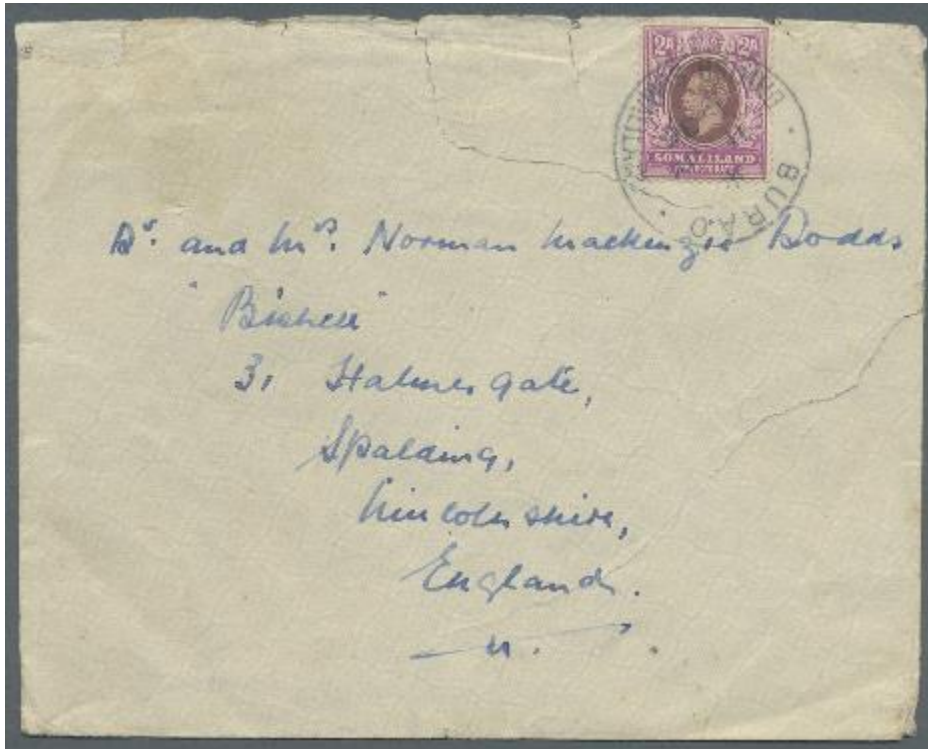 2A 2A
SOMALILAND
BURAO
Dr. and Mrs. Norman Mackenzie Dodds
31 Halmer gate,
Spalding,
Lincolnshire,
England.